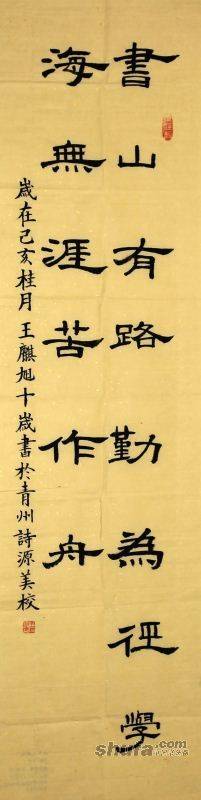 書山有路勤為徑學
海無涯苦作舟
歲在己亥桂月王麒旭十歲書於青州詩源美校
shufa.com